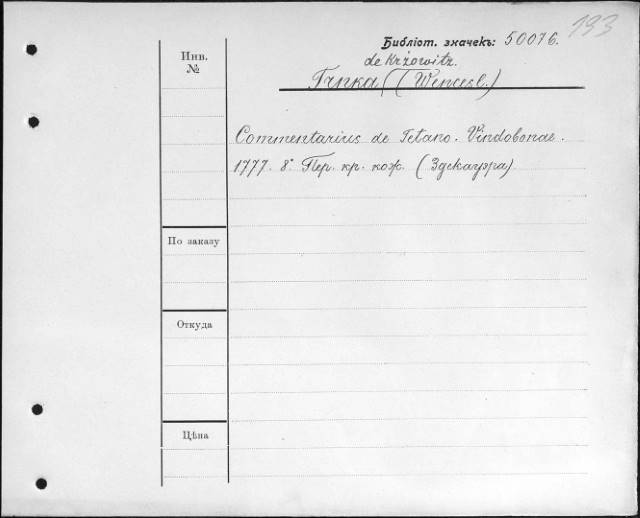 193
Библіот. значекъ: 50076.
de Kržowitz.
Trnka (Wencesl.)
Инв.
№
Commentarius de Tetano. Vindobonae.
1777. 8°. Пер. кр. кож. (Здекауэра)
По заказу
Откуда
Цѣна